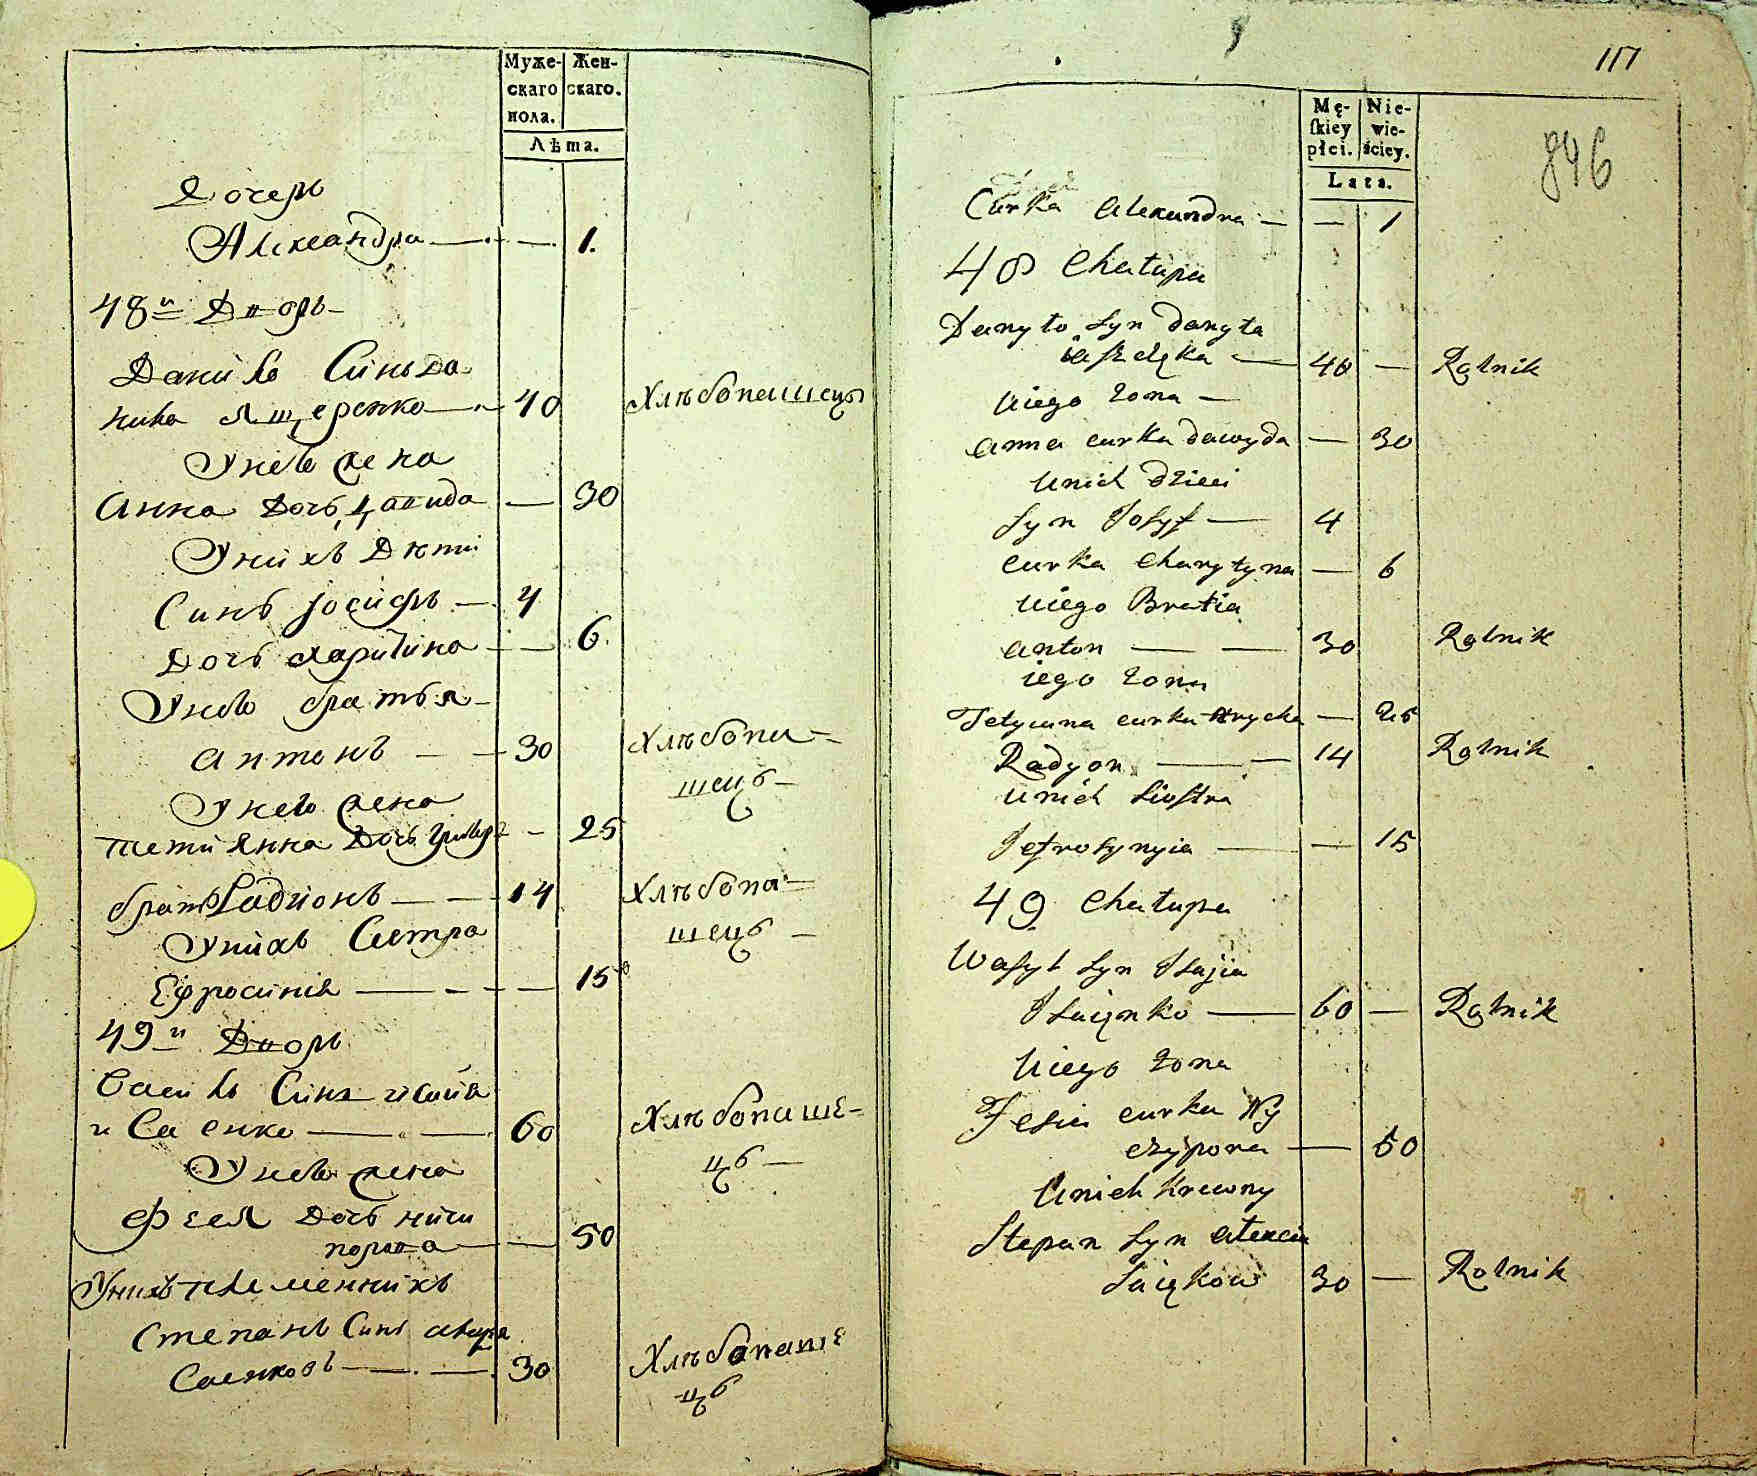 Муже-
скаго
пола.
Жен-
скаго.
Лѣта.
Дочерь
Александра — — 1.
48й Дворъ
Данило Синъ Да
нила Ящеренко — 40 Хлѣбопашецъ
Унево жена
Анна Дочь Давида — 30
Унихъ Дѣти
Синъ Іосифъ — 4
Дочь Харитина — 6.
Унево братья
Антонъ — — 30 Хлѣбопа-
шецъ —
Унево жена
Тетиянна Дочь — 25
братъ Радионъ — — 14 Хлѣбопа-
шецъ —
Унихъ Систра
Ефросиния — — — 15
49й Дворъ
Василь Синъ исаия
исаенко — — 60 Хлѣбопаше-
цъ —
Унево жена
Фесия Дочь ничи
пора — 50
Унихъ племенникъ
Степанъ Синъ
Саенковъ — — 30 Хлѣбопаше
цъ
117
846
Mę-
ſkiey
płci.
Nie-
wie-
ściey.
Lata.
Curka Alexandra — — 1
48 Chałupa
Danyło Syn Danyła
— 40 — Rolnik
Uiego Żona —
Anna curka Dawyda — 30
Unich Dzieci
Syn Josyf — 4
curka Charytyna — 6
Uiego Bratia
Anton — — 30 Rolnik
iego Żona
Tetyanna curka — 25
Radyon — — 14 Rolnik
Unich Siostra
Jefrosynyia — — 15
49 Chałupa
Wasyl Syn Isajia
Isaięnko — 60 — Rolnik
Uiego Żona
Fesia curka Ny
czypora — 50
Unich Krewny
Stepan Syn
Saiękow 30 — Rolnik